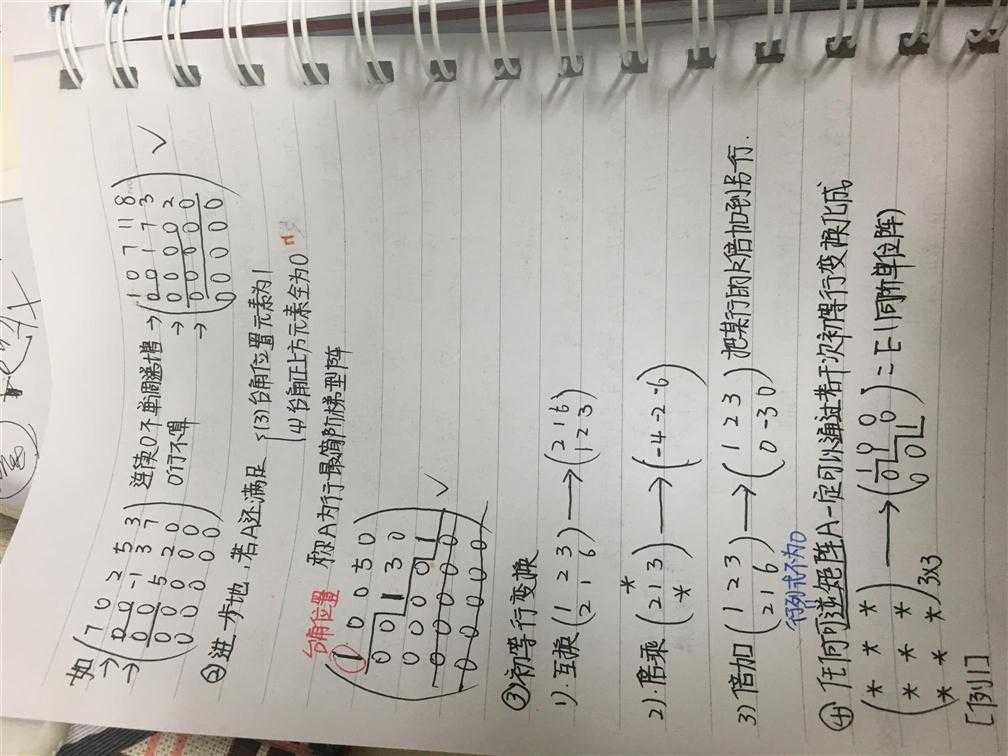 如 (7 0 2 5 3
→ 0 0 -1 3 7
→ 0 0 5 2 0
0 0 0 0 0
0 0 0 0 0)
连续0不单调递增
0行不算
→ (1 0 7 11 8
0 0 1 7 3
→ 0 0 0 0 2
→ 0 0 0 0 0
0 0 0 0 0) ✓
②进一步地,若A还满足 {(3)台角位置元素为1
(4)台角正上方元素全为0
称A为行最简阶梯型阵
台角位置
(1 0 0 5 0
0 0 1 3 0
0 0 0 0 1
0 0 0 0 0
0 0 0 0 0) ✓
③初等行变换
1).互换 (1 2 3
2 1 6) → (2 1 6
1 2 3)
2).倍乘 (* *
2 1 3) → (-4 -2 -6)
3)倍加 (1 2 3
2 1 6) → (1 2 3
0 -3 0) 把某行的k倍加到另一行.
行列式不为0
④任何可逆矩阵A一定可以通过若干次初等行变换化成
(* * *
* * *
* * *)3x3 → (1 0 0
0 1 0
0 0 1) = E(同阶单位阵)
[例1]